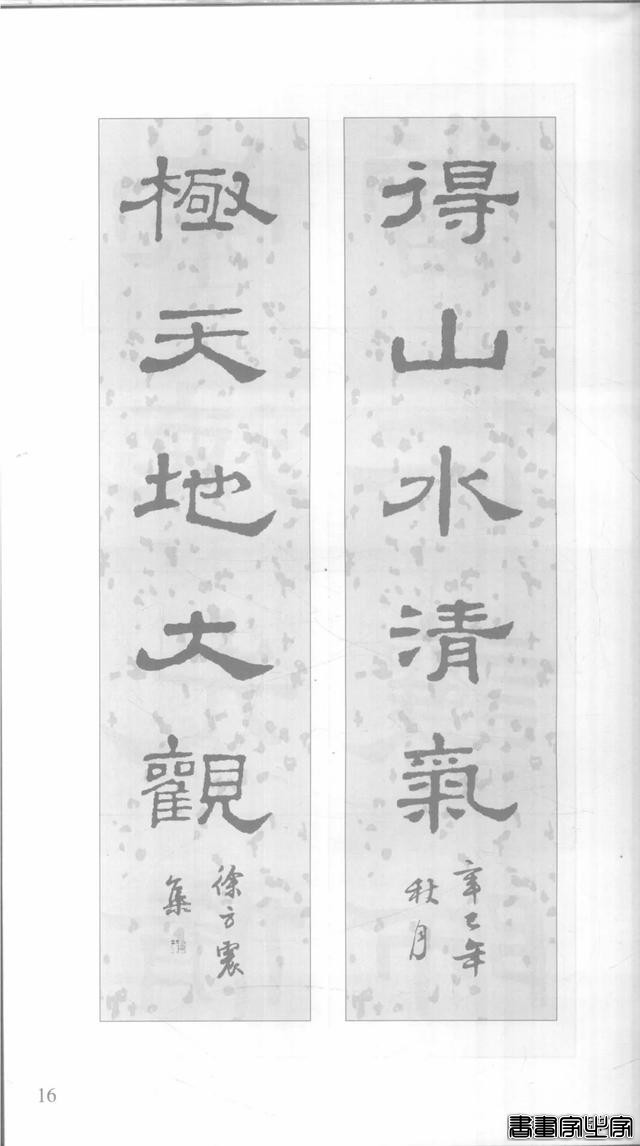 得山水清氣
辛巳年
秋月
極天地大觀
徐方震
集
16
書畫家必字